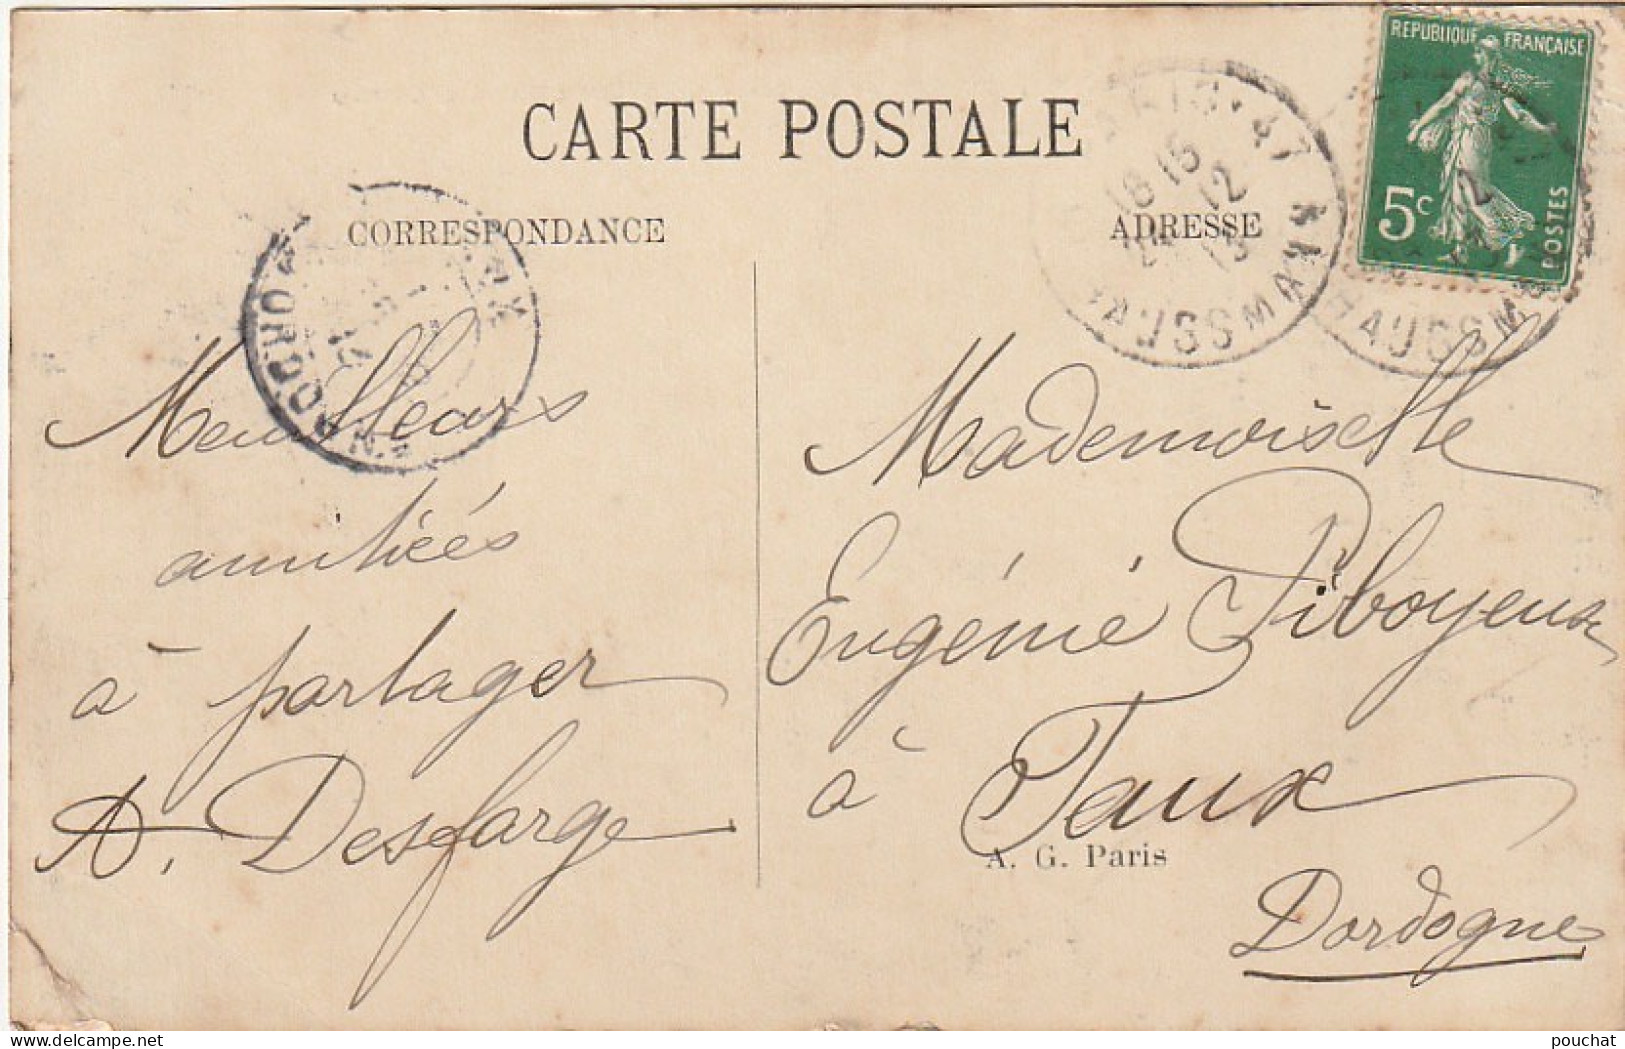 CARTE POSTALE
CORRESPONDANCE
ADRESSE
REPUBLIQUE FRANÇAISE
5c
POSTES
18 15
12
13
Meilleurs
amitiéés
à partager
A. Desfarge
Mademoiselle
Eugénie Piboyeux
à Faux
A. G. Paris
Dordogne
www.delcampe.net
pouchat